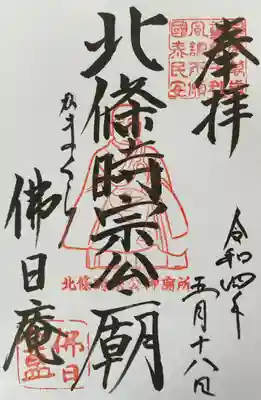 奉拝
令和四年
五月十八日
北條時宗公廟
北條時宗公御廟所
かまくら
佛日庵
國泰民安
佛日